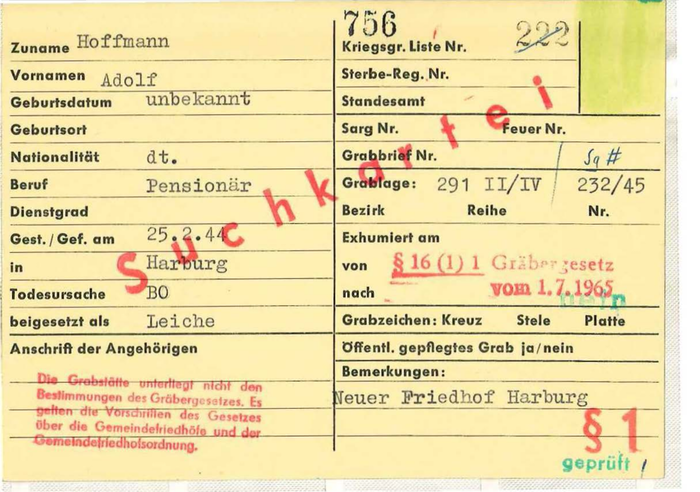 Zuname Hoffmann
Vornamen Adolf
Geburtsdatum unbekannt
Geburtsort
Nationalität dt.
Beruf Pensionär
Dienstgrad
Gest./Gef. am 25.2.44
in Harburg
Todesursache BO
beigesetzt als Leiche
Anschrift der Angehörigen
Die Grabstätte unterliegt nicht den
Bestimmungen des Gräbergesetzes. Es
gelten die Vorschriften des Gesetzes
über die Gemeindefriedhöfe und der
Gemeindefriedhofsordnung.
Suchkartei
756
Kriegsgr. Liste Nr. 222
Sterbe-Reg. Nr.
Standesamt
Sarg Nr. Feuer Nr.
Grabbrief Nr. Sg #
Grablage: 291 II/IV 232/45
Bezirk Reihe Nr.
Exhumiert am
von § 16 (1) 1 Gräbergesetz
nach vom 1.7.1965
Grabzeichen: Kreuz Stele Platte
Öffentl. gepflegtes Grab ja/nein
Bemerkungen:
Neuer Friedhof Harburg
§ 1
geprüft